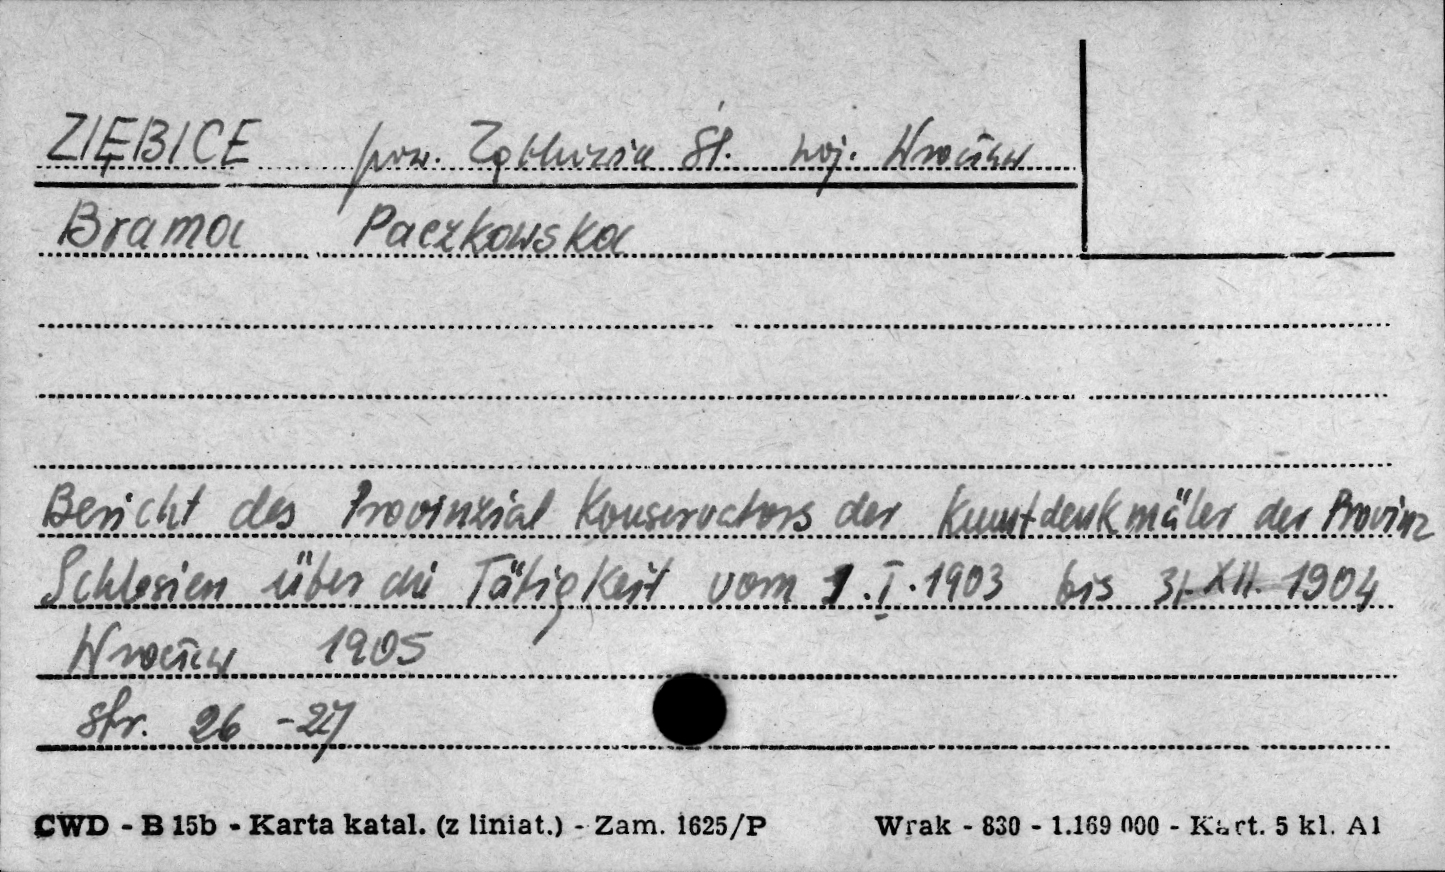 ZIĘBICE pow. Ząbkowice Śl. woj. Wrocław
Brama Paczkowska
Bericht des Provinzial Konservators der Kunstdenkmäler der Provinz
Schlesien über die Tätigkeit vom 1.I.1903 bis 31.XII.1904
Wrocław 1905
str. 26-27
CWD - B 15b - Karta katal. (z liniat.) - Zam. 1625/P Wrak - 830 - 1.169 000 - Kart. 5 kl. A1